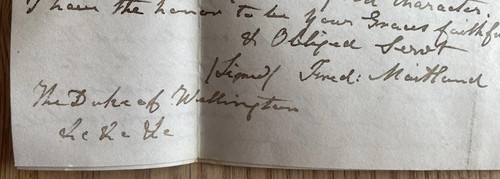 character.
I have the honor to be Your Graces faithful
& Obliged Servt
(Signed) Fred: Maitland
The Duke of Wellington
&c &c &c